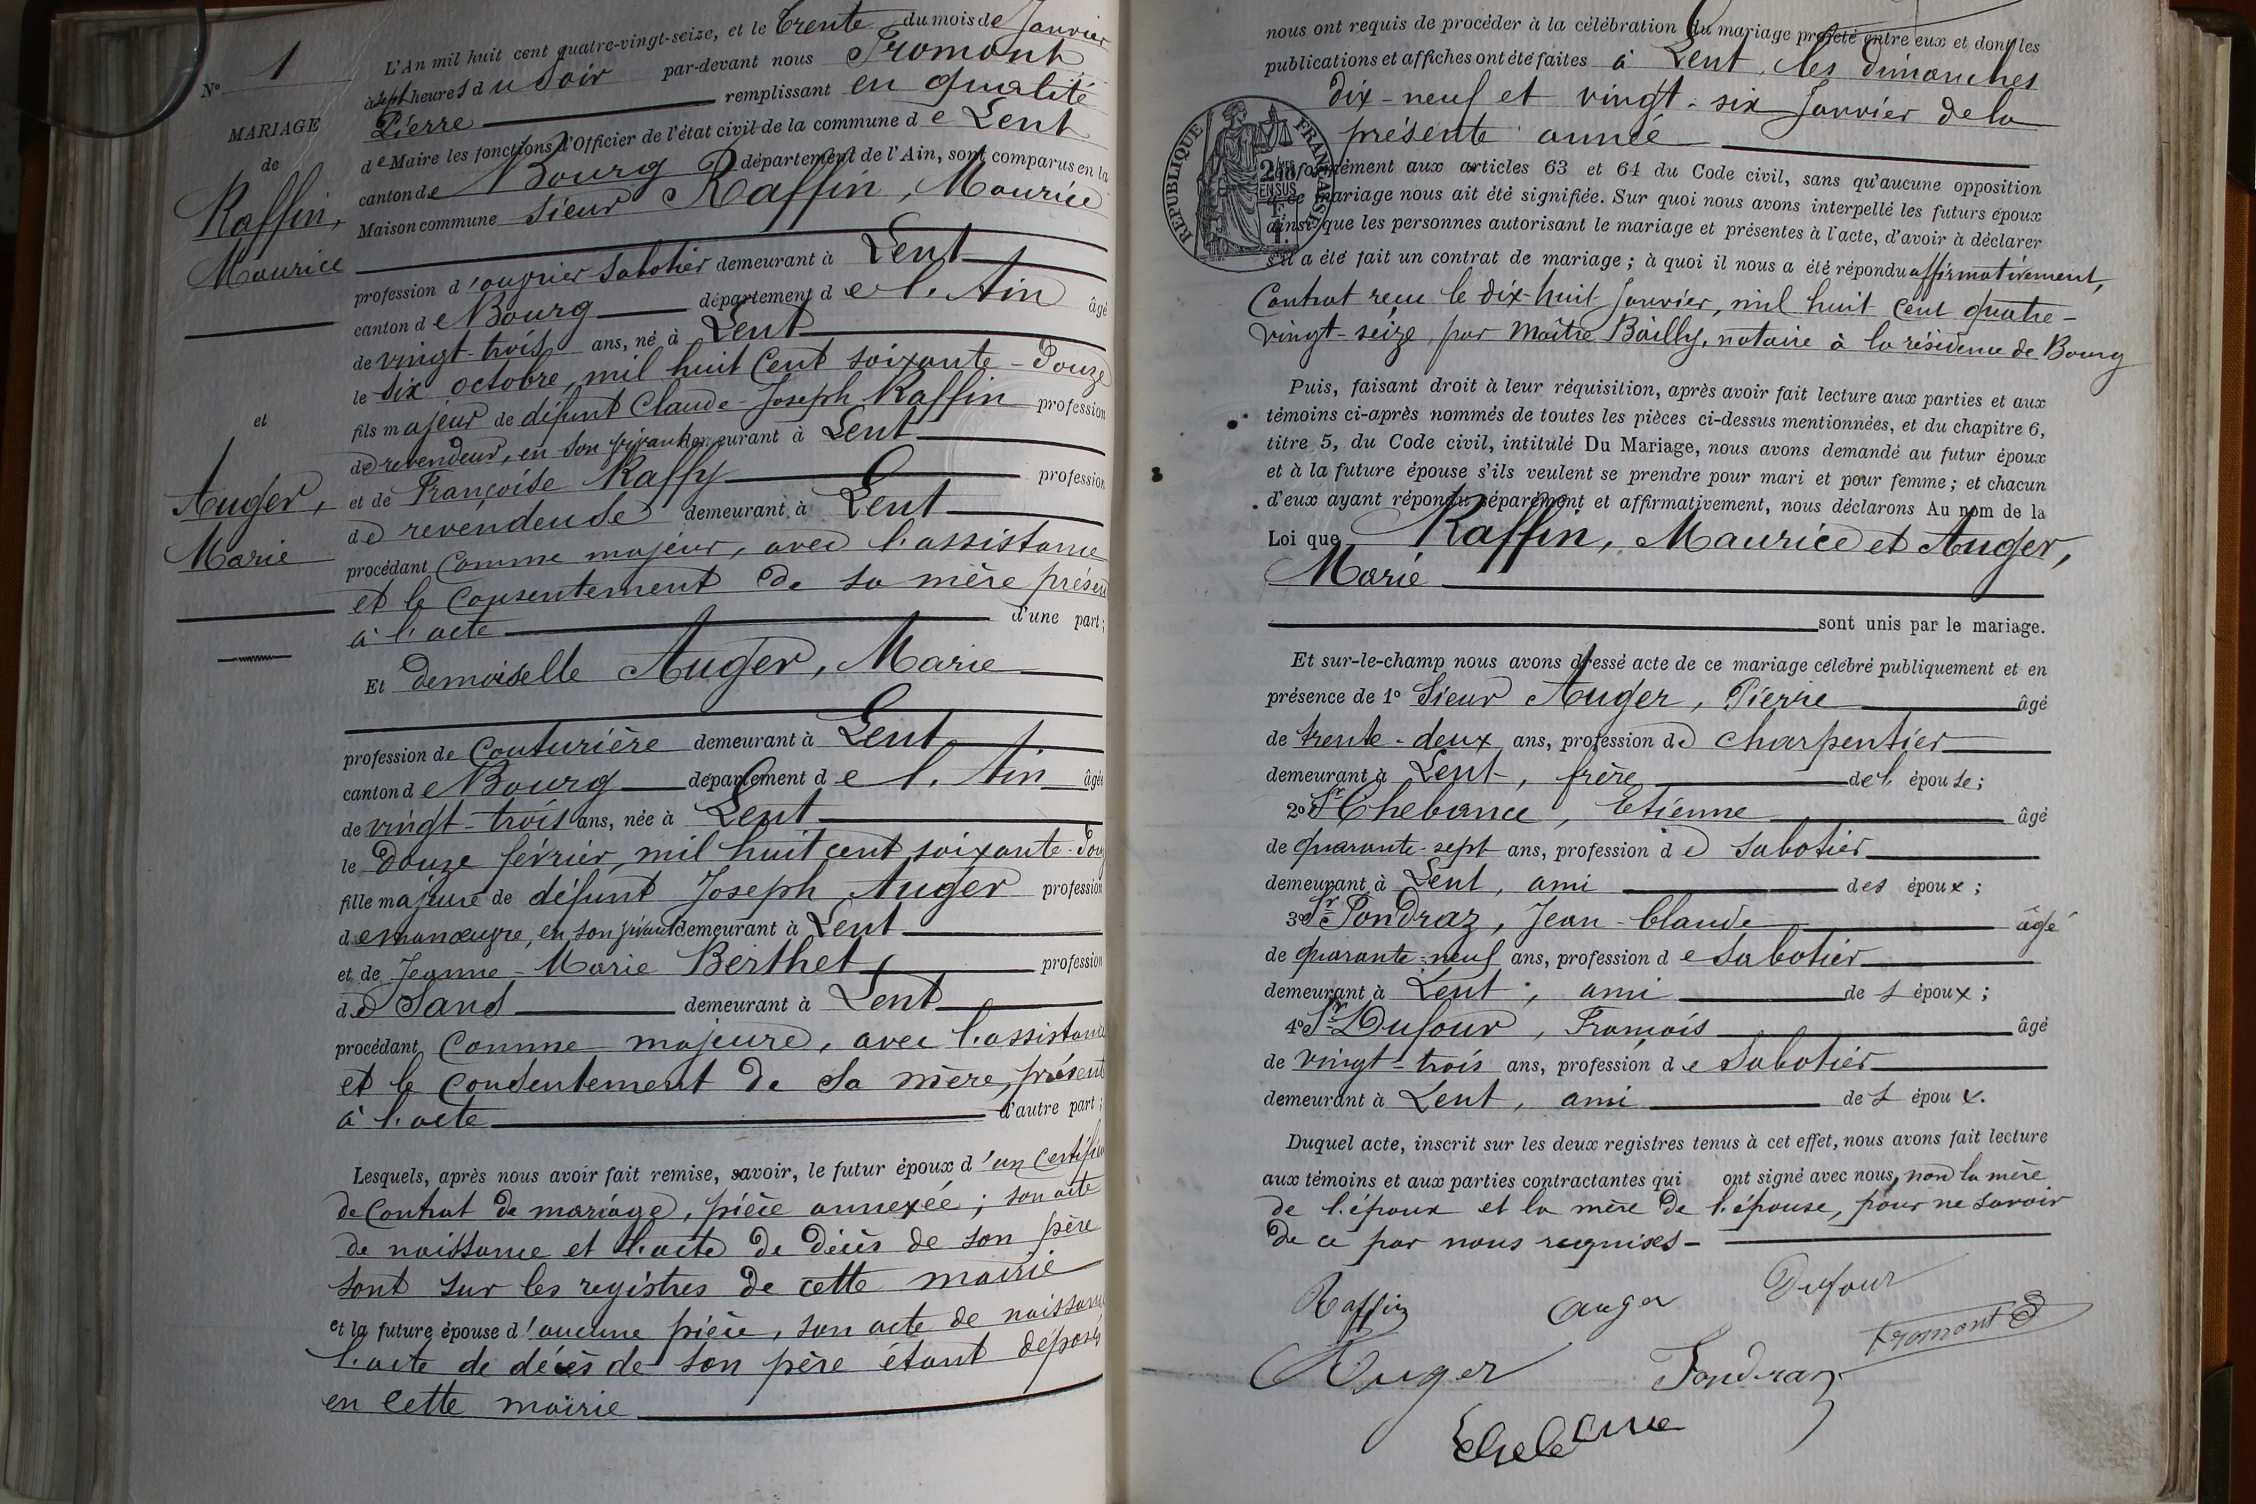 N° 1
MARIAGE
de
Raffin,
Maurice
et
Auger,
Marie
L'An mil huit cent quatre-vingt-seize, et le trente du mois de Janvier
à sept heures du soir par-devant nous Fromont
Pierre remplissant en qualité
de Maire les fonctions d'Officier de l'état civil de la commune de Lent
canton de Bourg département de l'Ain, sont comparus en la
Maison commune Sieur Raffin, Maurice
profession d'ouvrier sabotier demeurant à Lent
canton de Bourg département de l'Ain âgé
de vingt-trois ans, né à Lent
le six octobre, mil huit cent soixante-douze
fils majeur de défunt Claude-Joseph Raffin profession
de revendeur, en son vivant demeurant à Lent
et de Françoise Raffy profession
de revendeuse demeurant à Lent
procédant comme majeur, avec l'assistance
et le consentement de sa mère présen
à l'acte d'une part;
Et demoiselle Auger, Marie
profession de Couturière demeurant à Lent
canton de Bourg département de l'Ain âgée
de vingt-trois ans, née à Lent
le douze février, mil huit cent soixante-dou
fille majeure de défunt Joseph Auger profession
de manœuvre, en son vivant demeurant à Lent
et de Jeanne-Marie Berthet profession
de sans demeurant à Lent
procédant comme majeure, avec l'assistance
et le consentement de sa mère, présent
à l'acte d'autre part;
Lesquels, après nous avoir fait remise, savoir, le futur époux d'un certifica
de contrat de mariage, pièce annexée; son acte
de naissance et l'acte de décès de son père
sont sur les registres de cette mairie
et la future épouse d'aucune pièce, son acte de naissance
l'acte de décès de son père étant déposés
en cette mairie
nous ont requis de procéder à la célébration du mariage projeté entre eux et dont les
publications et affiches ont été faites à Lent, les dimanches
dix-neuf et vingt-six Janvier de la
présente année
RÉPUBLIQUE FRANÇAISE
conformément aux articles 63 et 64 du Code civil, sans qu'aucune opposition
à ce mariage nous ait été signifiée. Sur quoi nous avons interpellé les futurs époux
ainsi que les personnes autorisant le mariage et présentes à l'acte, d'avoir à déclarer
s'il a été fait un contrat de mariage; à quoi il nous a été répondu affirmativement,
Contrat reçu le dix-huit Janvier, mil huit cent quatre-
vingt-seize, par Maître Bailly, notaire à la résidence de Bourg
Puis, faisant droit à leur réquisition, après avoir fait lecture aux parties et aux
témoins ci-après nommés de toutes les pièces ci-dessus mentionnées, et du chapitre 6,
titre 5, du Code civil, intitulé Du Mariage, nous avons demandé au futur époux
et à la future épouse s'ils veulent se prendre pour mari et pour femme; et chacun
d'eux ayant répondu séparément et affirmativement, nous déclarons Au nom de la
Loi que Raffin, Maurice et Auger,
Marie
sont unis par le mariage.
Et sur-le-champ nous avons dressé acte de ce mariage célébré publiquement et en
présence de 1° Sieur Auger, Pierre âgé
de trente-deux ans, profession de charpentier
demeurant à Lent, frère de l'épouse;
2° Sr Chebance, Etienne âgé
de quarante-sept ans, profession de sabotier
demeurant à Lent, ami des époux;
3° Sr Pondraz, Jean-Claude âgé
de quarante-neuf ans, profession de sabotier
demeurant à Lent, ami des époux;
4° Sr Dufour, François âgé
de vingt-trois ans, profession de sabotier
demeurant à Lent, ami des époux.
Duquel acte, inscrit sur les deux registres tenus à cet effet, nous avons fait lecture
aux témoins et aux parties contractantes qui ont signé avec nous, non la mère
de l'époux et la mère de l'épouse, pour ne savoir
de ce par nous requises-
Raffin auger Dufour
Fromont
Auger Pondraz
Chebance